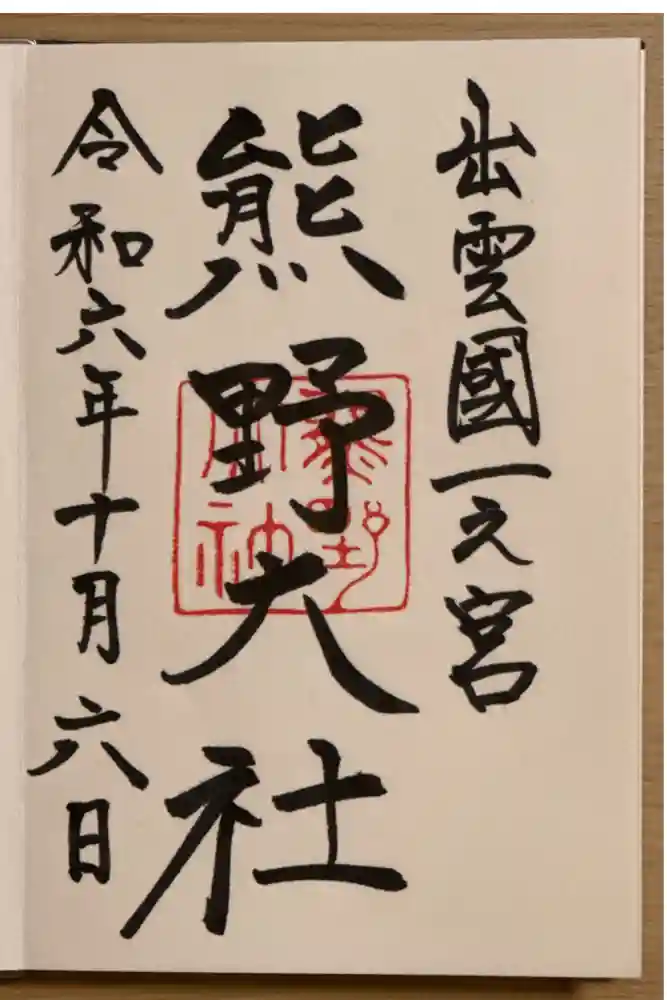 出雲國一之宮
熊野大社
熊野大社
令和六年十月六日